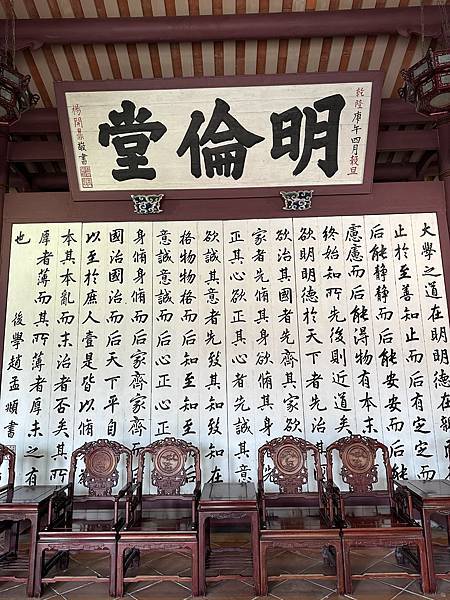 明倫堂
乾隆庚午四月穀旦
楊開鼎敬書
大學之道在明明德在親民在
止於至善知止而后有定定而
后能靜靜而后能安安而后
慮慮而后能得物有本末
終始知所先後則近道矣
欲明明德於天下者先治
欲治其國者先齊其家欲
家者先脩其身欲脩其身
正其心欲正其心者先誠其
欲誠其意者先致其知致知在
格物物格而后知至知至
意誠意誠而后心正心正
身脩身脩而后家齊家齊而后
國治國治而后天下平自
以至於庶人壹是皆以脩
本其本亂而末治者否矣其所
厚者薄而其所薄者厚未之有
也
後學趙孟頫書